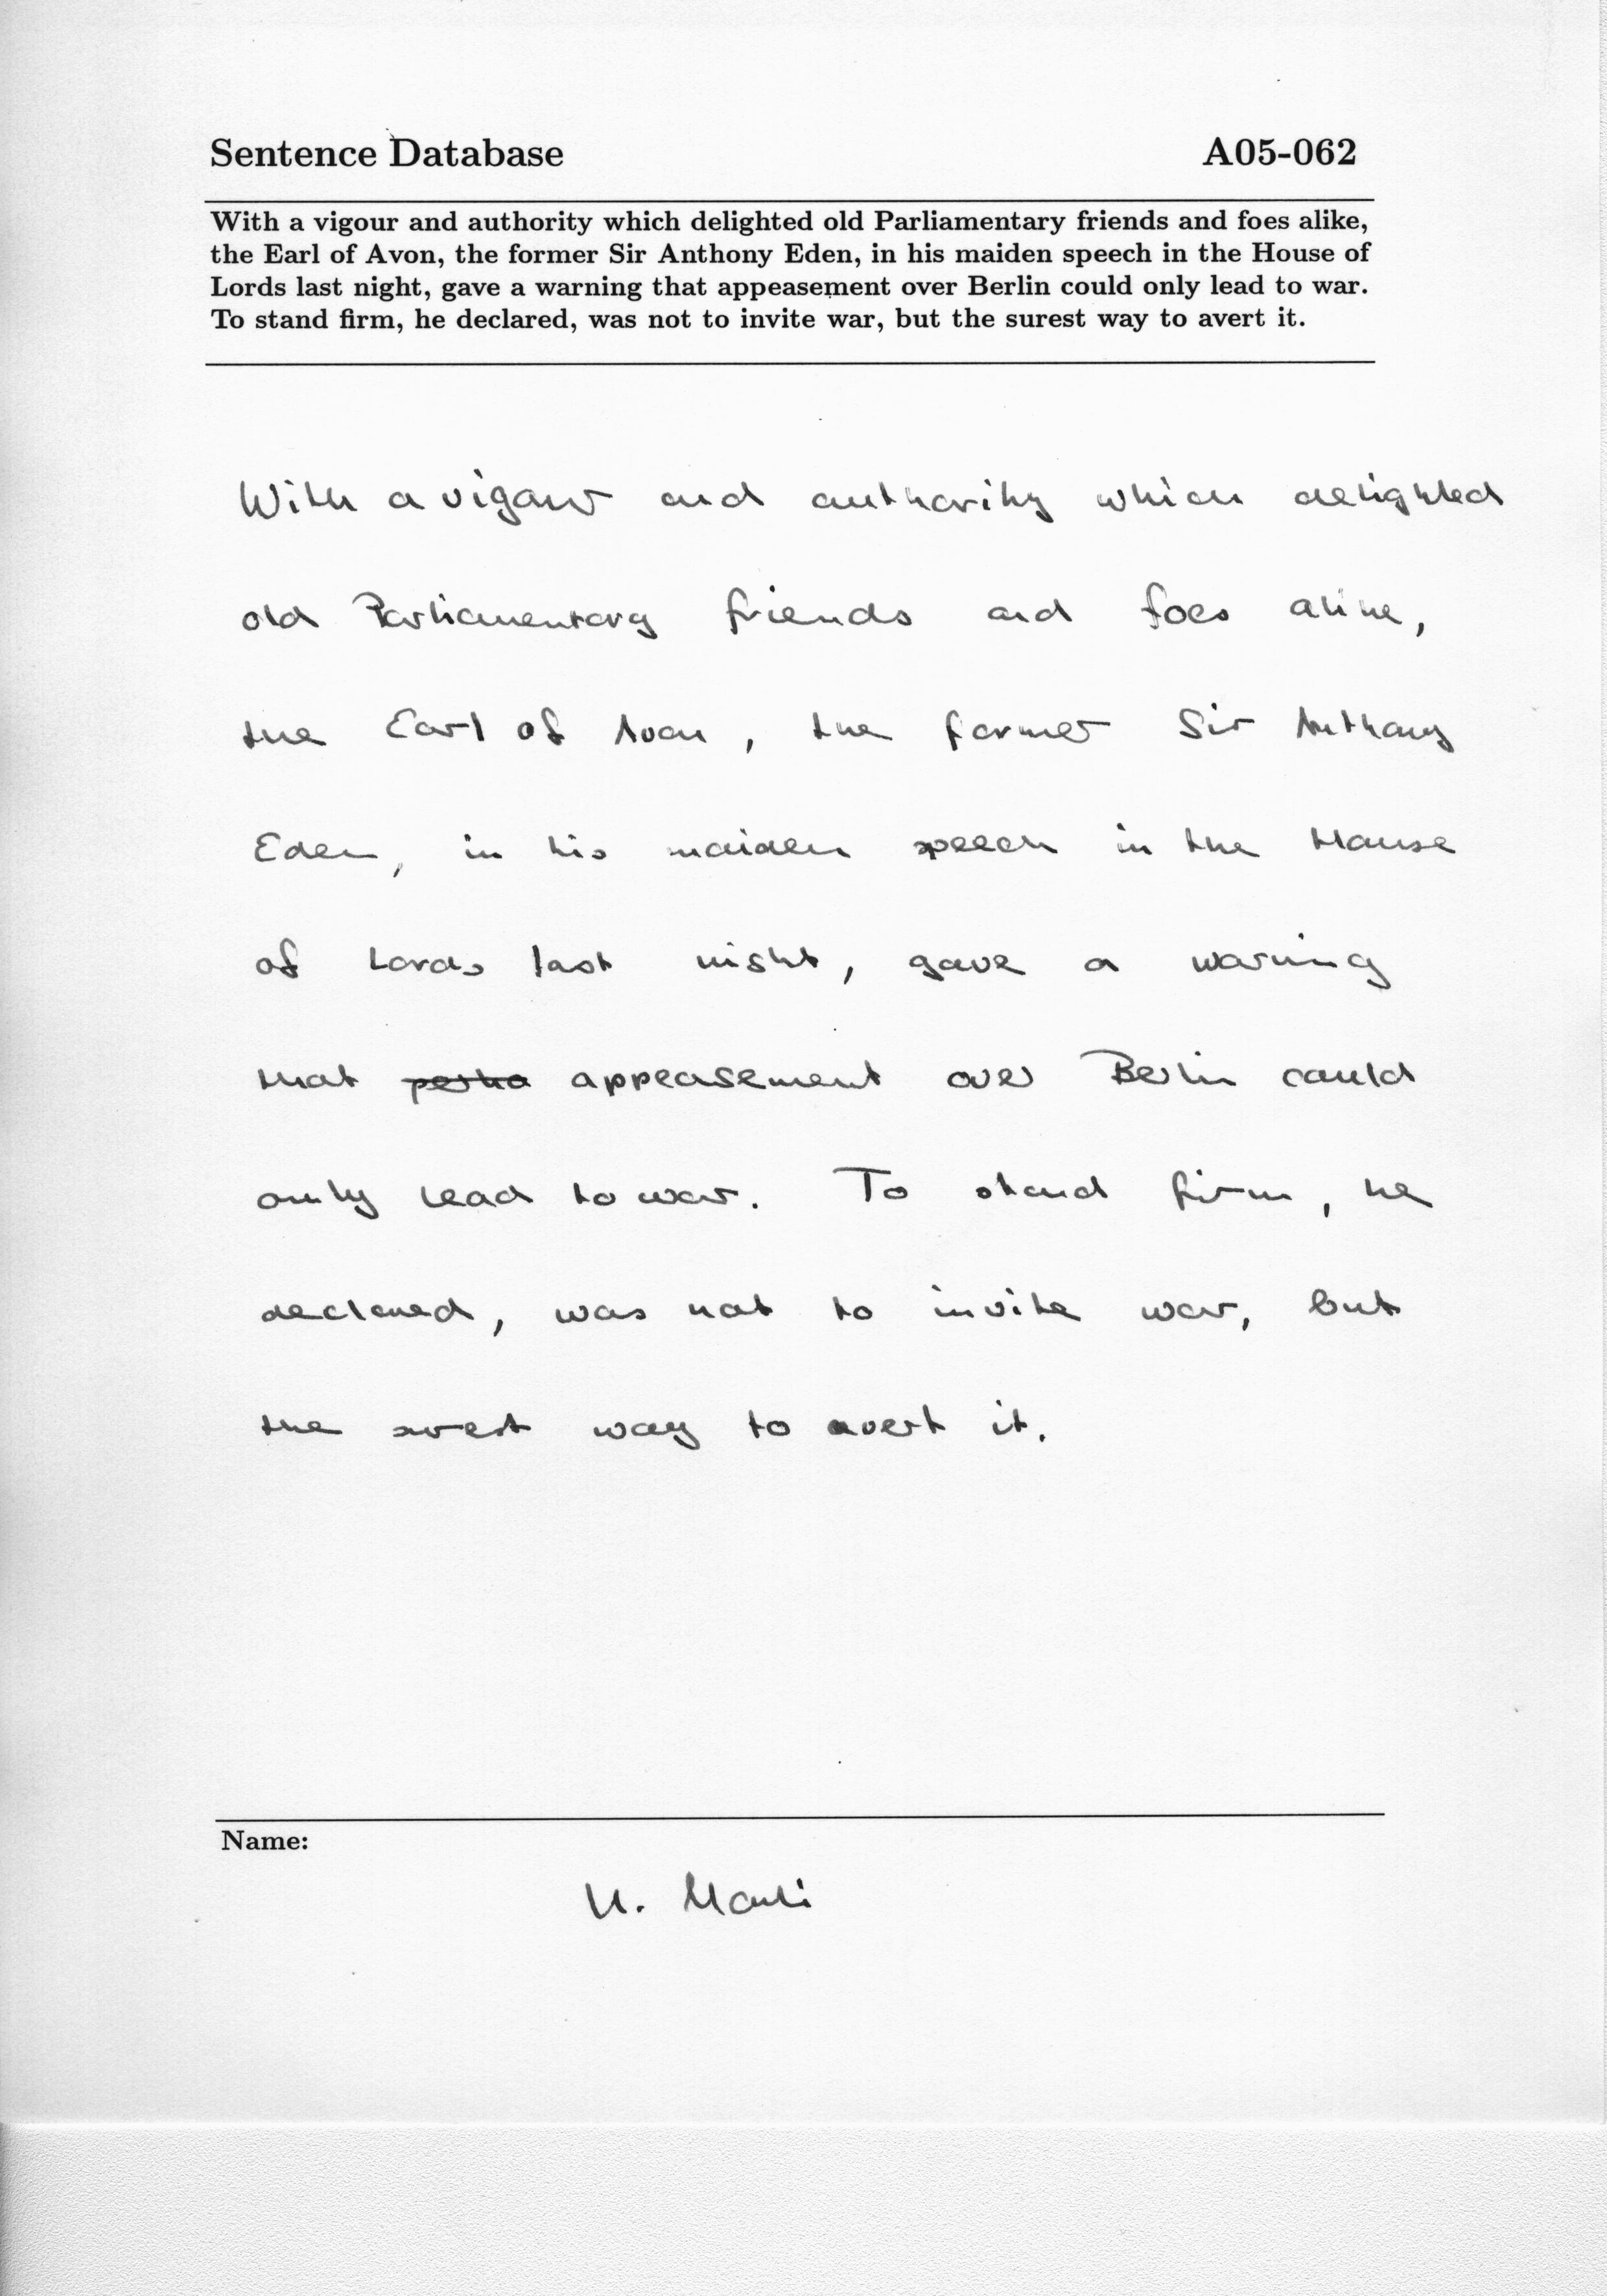 Sentence Database A05-062
With a vigour and authority which delighted old Parliamentary friends and foes alike,
the Earl of Avon, the former Sir Anthony Eden, in his maiden speech in the House of
Lords last night, gave a warning that appeasement over Berlin could only lead to war.
To stand firm, he declared, was not to invite war, but the surest way to avert it.
With a vigour and authority which delighted
old Parliamentary friends and foes alike,
the Earl of Avon, the former Sir Anthony
Eden, in his maiden speech in the House
of Lords last night, gave a warning
that appeasement over Berlin could
only lead to war. To stand firm, he
declared, was not to invite war, but
the surest way to avert it.
Name:
U. Marti